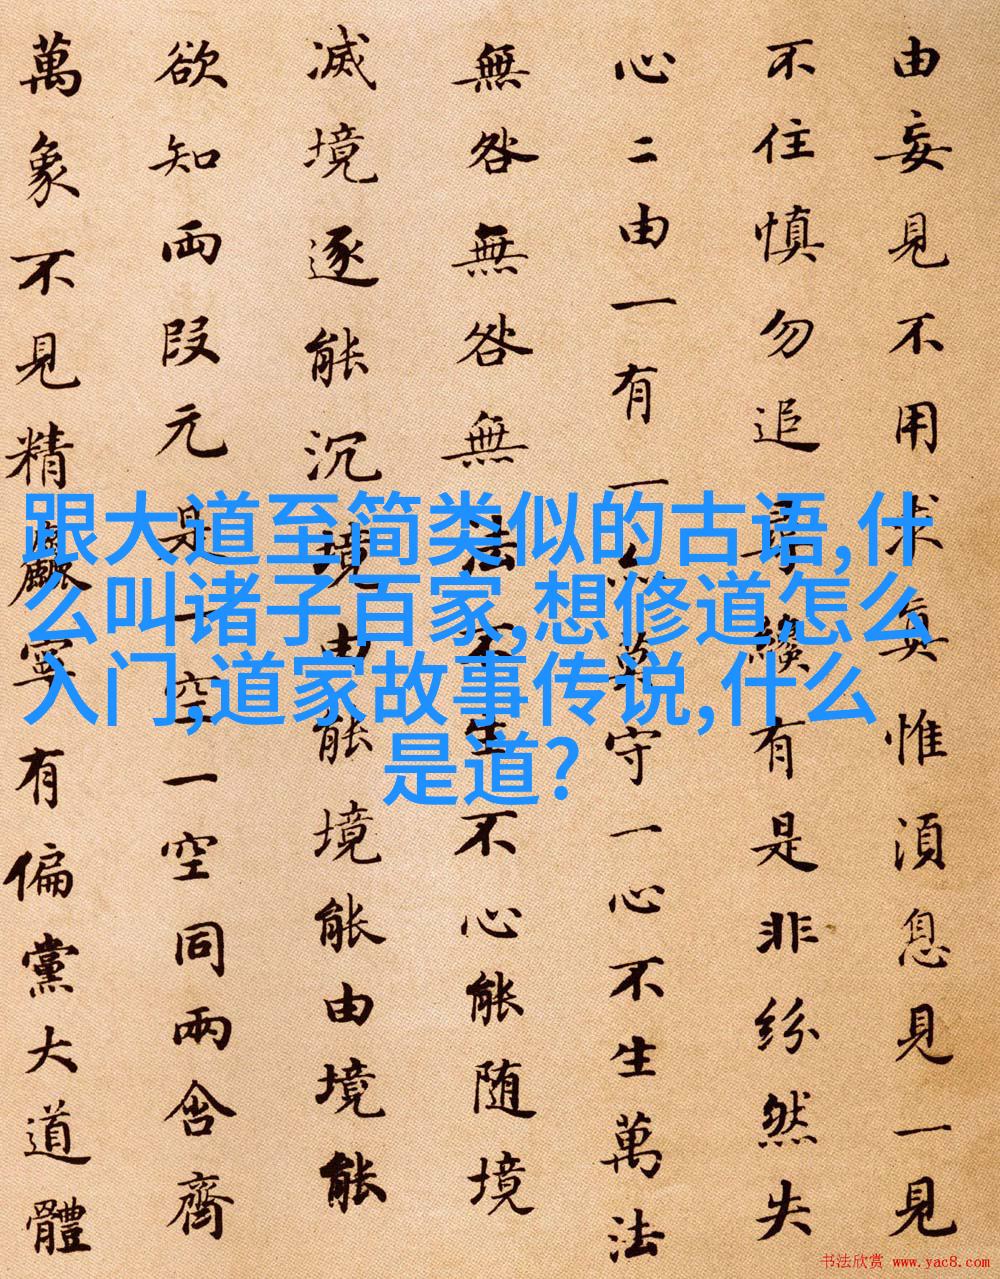 由妄見不用求真惟須息見一見
不住慎勿追尋纔有是非紛然失
心二由一有一亦莫守一心不生萬法
無咎無咎無法不生不心能随境
滅境逐能沉境由能境能由境能
欲知両段元是一空一空同兩含齊
萬象不見精麤寧有偏黨大道體
跟大道至简类似的古语,什
么叫诸子百家,想修道怎么
入门,道家故事传说,什么
是道?
书法欣赏 www.yac8.com